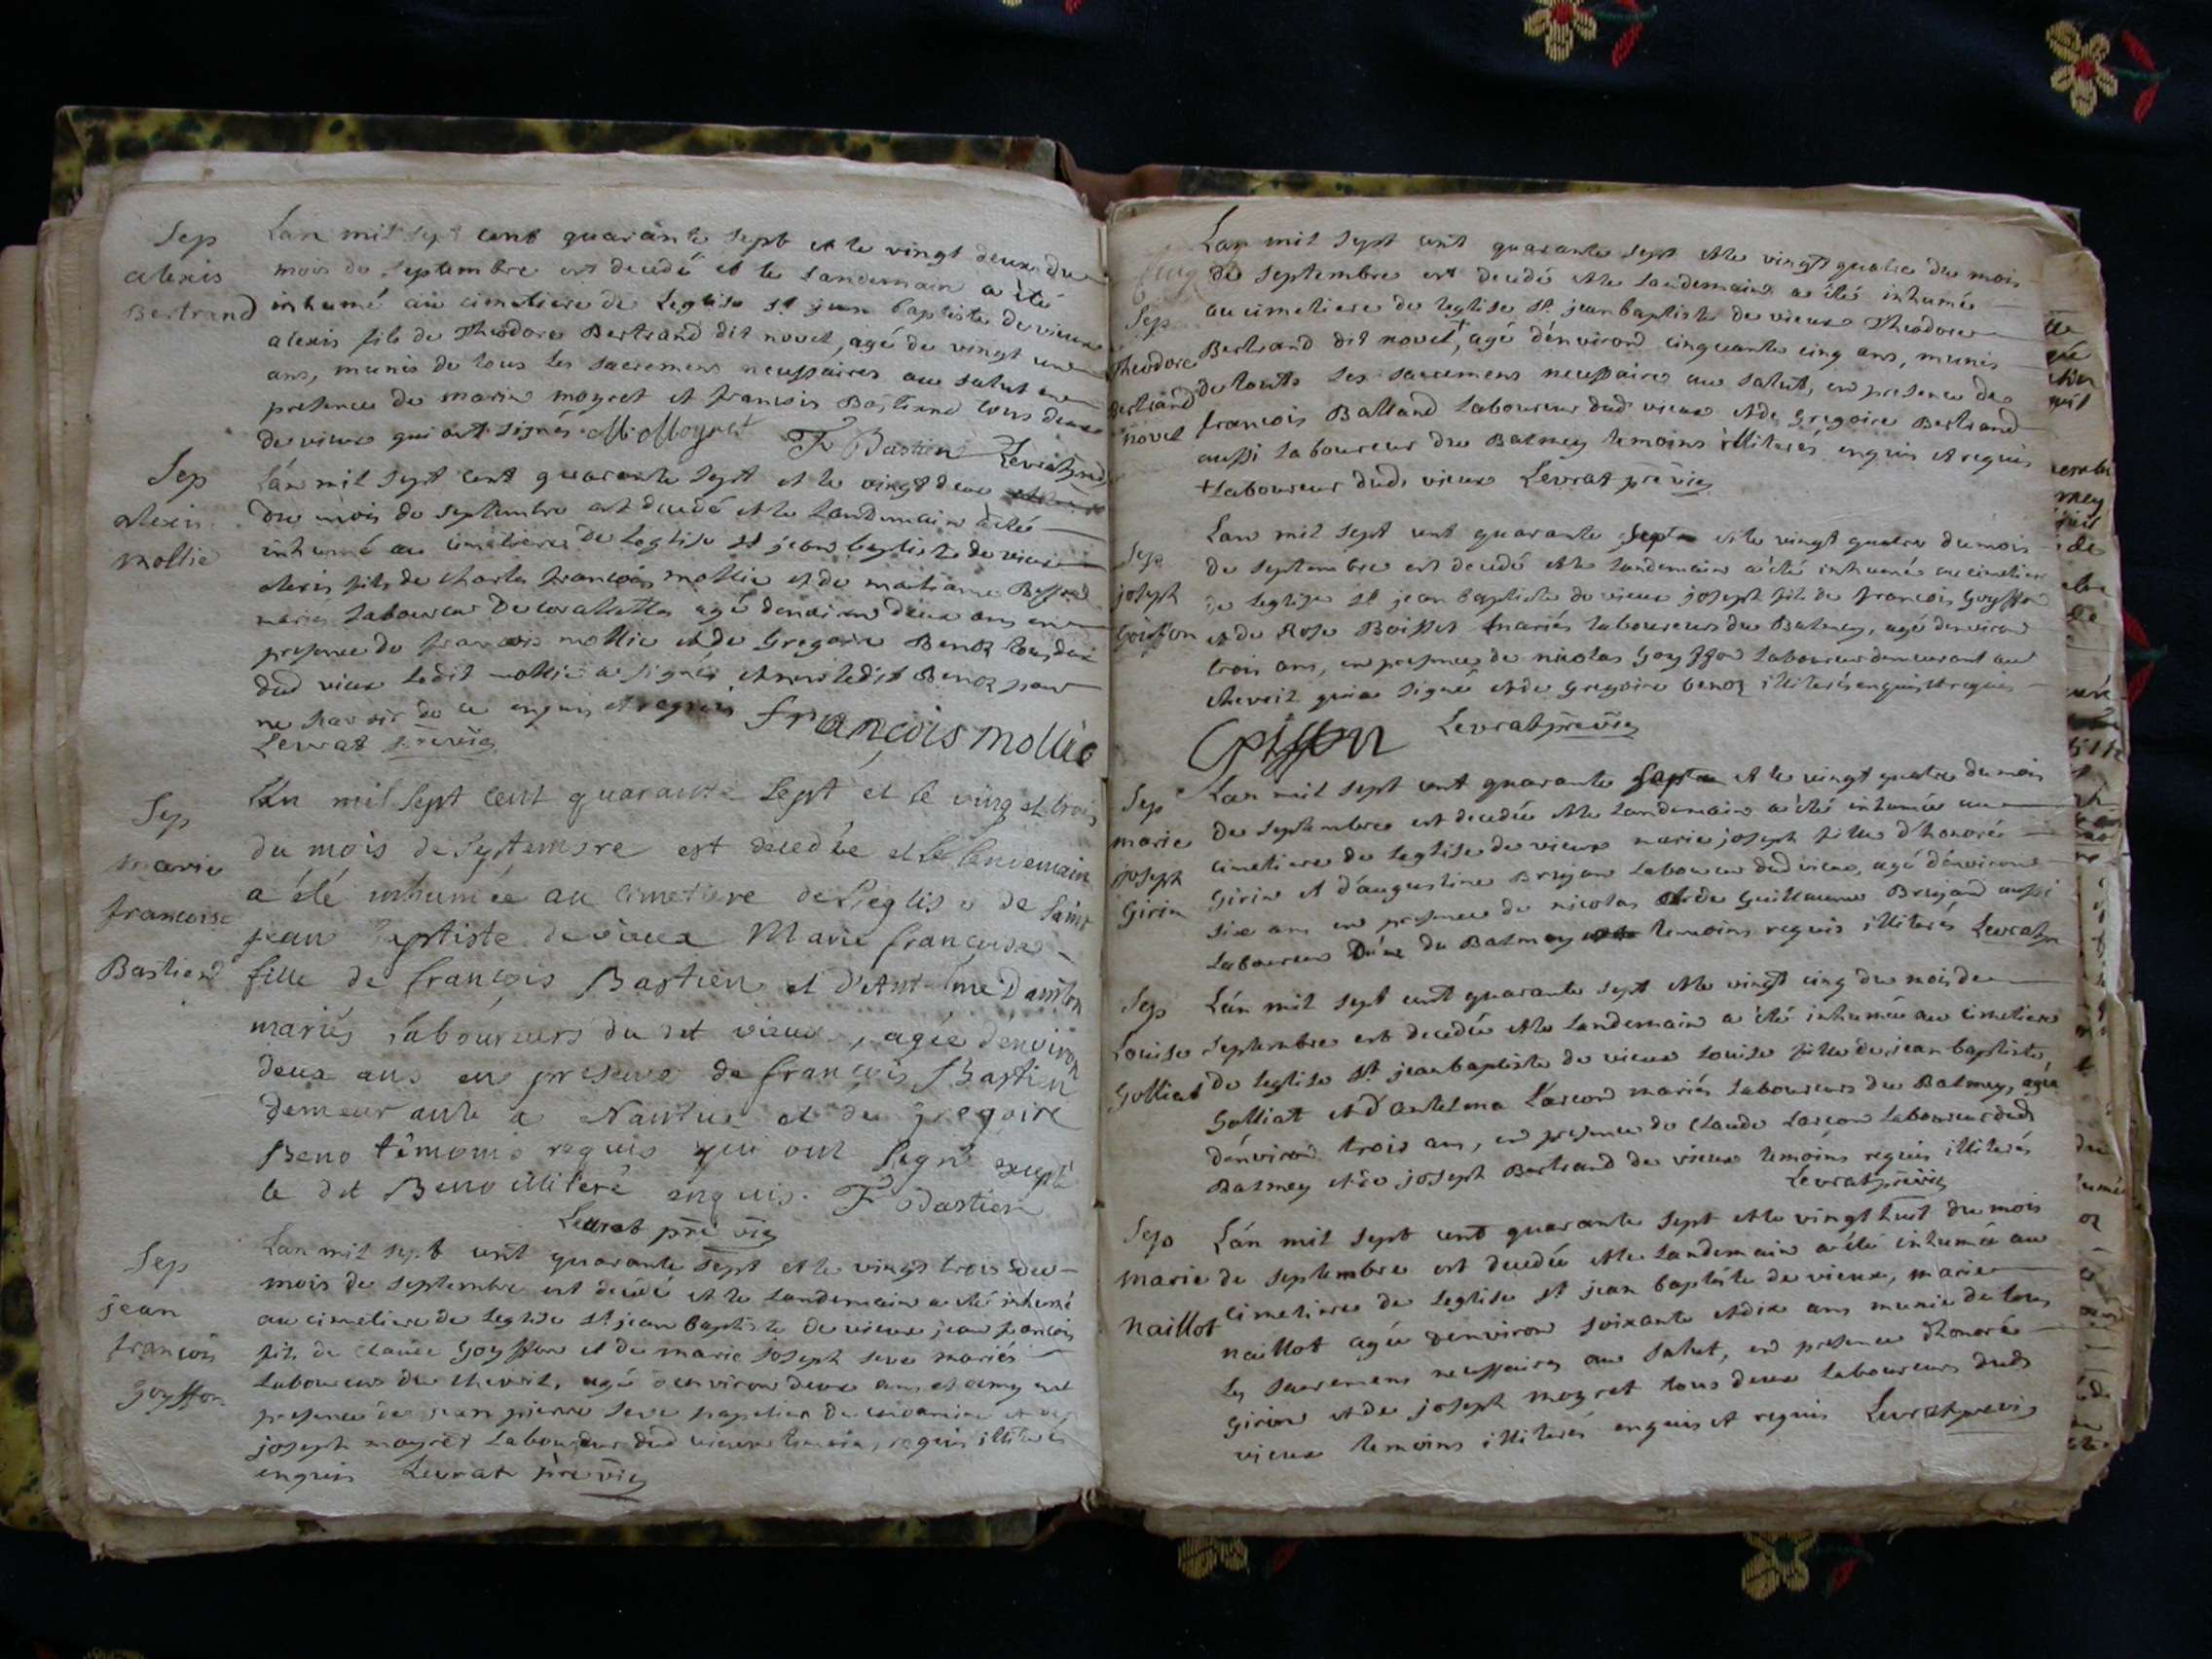 Sep
alexis
Bertrand
Lan mil sept cent quarante sept et le vingt deux du
mois de septembre est decedé et le landemain a été
inhumé au cimetiere de Leglise st jean baptiste de vieux
alexis fils de Theodore Bertrand dit novel, agé de vingt un
ans, munis de tous les sacremens necessaires au salut en
presence de marin moyret et francois Bastiend tous deux
de vieux qui ont signés M Moyret F Bastien Levrat
Sep
alexis
mollie
Lán mil sept cent quarante sept et le vingt deux
du mois de septembre est decedé et le landemain a été
inhumé au cimetiere De Leglise st jean baptiste de vieux
alexis fils de charles francois mollie et de
mariés laboureur agé denviron deux ans en
presence de francois mollie et de Gregoire Benoz tous deux
dud vieux ledit mollie a signé et non ledit Benoz pour
ne scavoir de ce enquis et requis françois mollie
Levrat pre vic
Sep
marie
francoise
Bastiend
Lan mil Sept cent quarante Sept et le ving et trois
du mois de Septembre est decedée et le lendemain
a été inhumée au cimetiere de l'eglise de Saint
jean Baptiste de vieux Marie francoise
fille de françois Bastien et d'Antelme
mariés laboureurs du dit vieux, agée d'environ
deux ans en presence de françois Bastien
demeurante a Nantua et de gregoire
Beno témoins requis qui ont signé excepté
le dit Beno illiteré enquis. F Bastien
Levrat pre vic
Sep
jean
francois
Goyffon
Lan mil sept cent quarante sept et le vingt trois du
mois de septembre est decedé et le landemain a été inhumé
au cimetiere de leglise st jean baptiste de vieux jean francois
fils de claude Goyffon et de marie joseph seve mariés
laboureurs du chevril, agé denviron deux ans et demy en
presence de jean pierre seve et de
joseph moyret laboureur dud vieux temoins, requis illiterés
enquis Levrat pre vic
Sep
Theodore
Bertrand
novel
Lan mil sept cent quarante sept et le vingt quatre du mois
de septembre est decedé et le landemain a été inhumée
au cimetiere de leglise st jean baptiste de vieux Theodore
Bertrand dit novel +, agé dénviron cinquante cinq ans, munis
de touts les sacremens necessaires au salut, en presence de
francois Balland laboureur dud vieux et de Gregoire Bertrand
aussi laboureur du Balmey temoins illiterés enquis et requis
+ laboureur dud. vieux Levrat pre vic
Sep
joseph
Goiffon
Lan mil sept cent quarante sept et le vingt quatre du mois
de septembre est decedé et le landemain a été inhumé au cimetiere
de leglise st jean baptiste de vieux joseph fils de francois Goyffon
et de Rose Boisset mariés laboureurs du Balmey, agé denviron
trois ans, en presence de nicolas Goyffon laboureur demeurant au
chevril qui a signé et de gregoire benoz illiterés enquis et requis
Goiffon Levrat pre vic
Sep
marie
joseph
Girin
Lan mil sept cent quarante sept et le vingt quatre du mois
de septembre est decedée et le landemain a été inhumée au
cimetiere de leglise de vieux marie joseph fille d'honoré
Girin et d'augustine Brujan laboureur dud vieux, agé d'environ
six ans en presence de nicolas et de Guillaume Brujand aussi
laboureur du Balmey temoins requis illiterés Levrat
Sep
Louise
Golliat
Lán mil sept cent quarante sept et le vingt cinq du mois de
septembre est decedée et le landemain a été inhumée au cimetiere
de leglise st jean baptiste de vieux louise fille de jean baptiste
Golliat et d'antelma Larcon mariés laboureurs du Balmey, agée
dénviron trois ans, en presence de claude Larcon laboureur dud
Balmey et de joseph Bertrand de vieux temoins requis illiterés
Levrat pre vic
Sep
marie
naillot
Lán mil sept cent quarante sept et le vingt huit du mois
de septembre est decedée et le landemain a été inhumée au
cimetiere de leglise st jean baptiste de vieux, marie
naillot agée denviron soixante et dix ans munie de tous
les sacremens necessaires au salut, en presence d'honoré
Girin et de joseph moyret tous deux laboureurs dud
vieux temoins illiterés enquis et requis Levrat pre vic